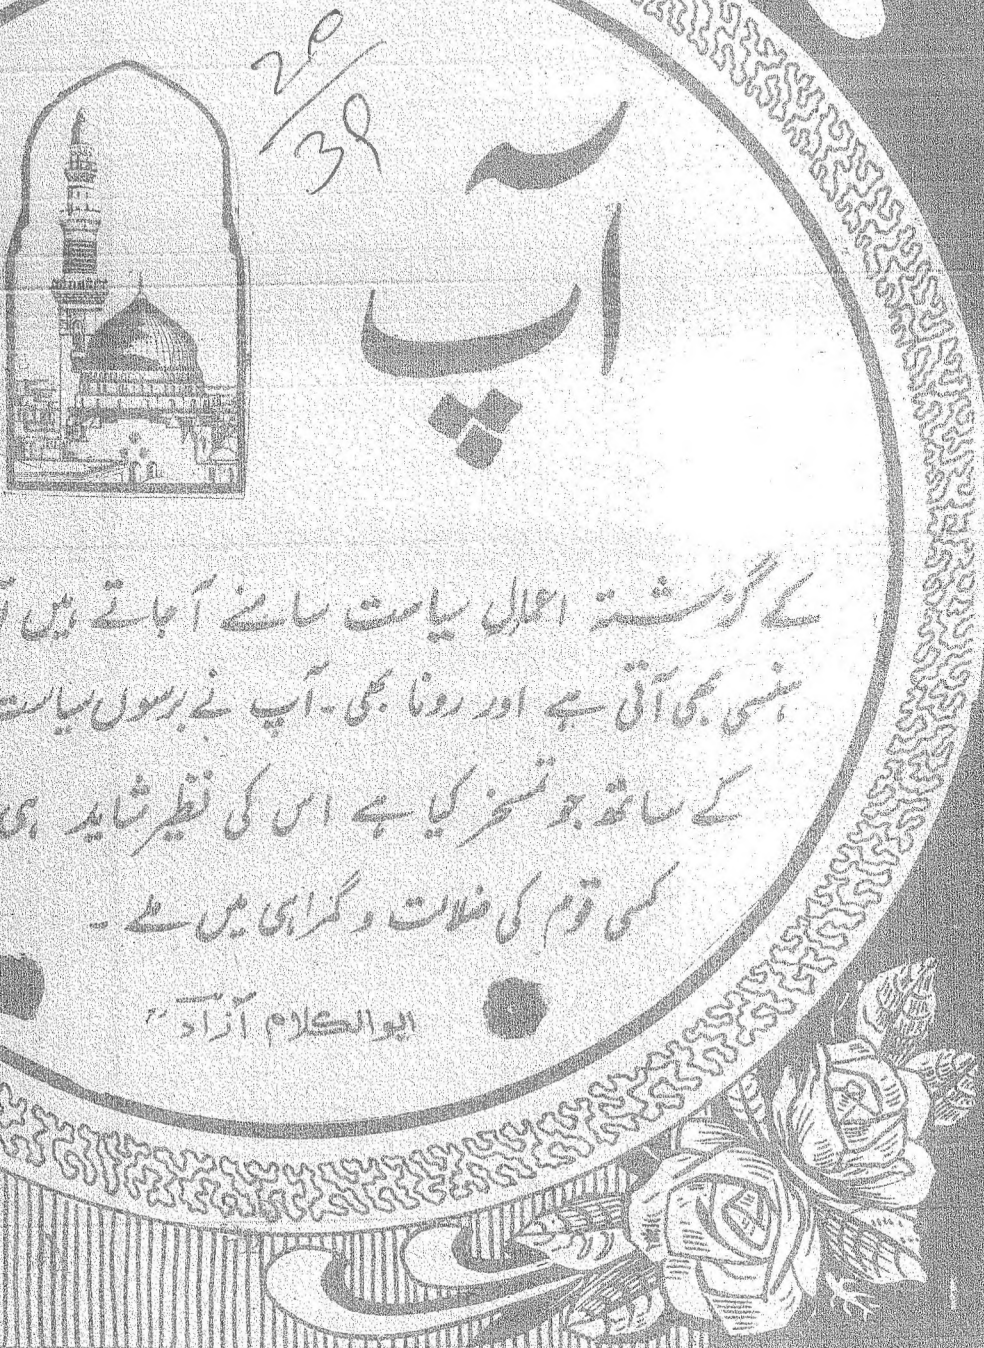 29/39
آپ
کے گزشتہ اعمال سیاست سامنے آجاتے ہیں
ہنسی بھی آتی ہے اور رونا بھی۔ آپ نے برسوں سیاست
کے ساتھ جو تمسخر کیا ہے اس کی نظیر شاید ہی
کسی قوم کی ضلالت و گمراہی میں ملے۔
ابوالکلام آزادؒ